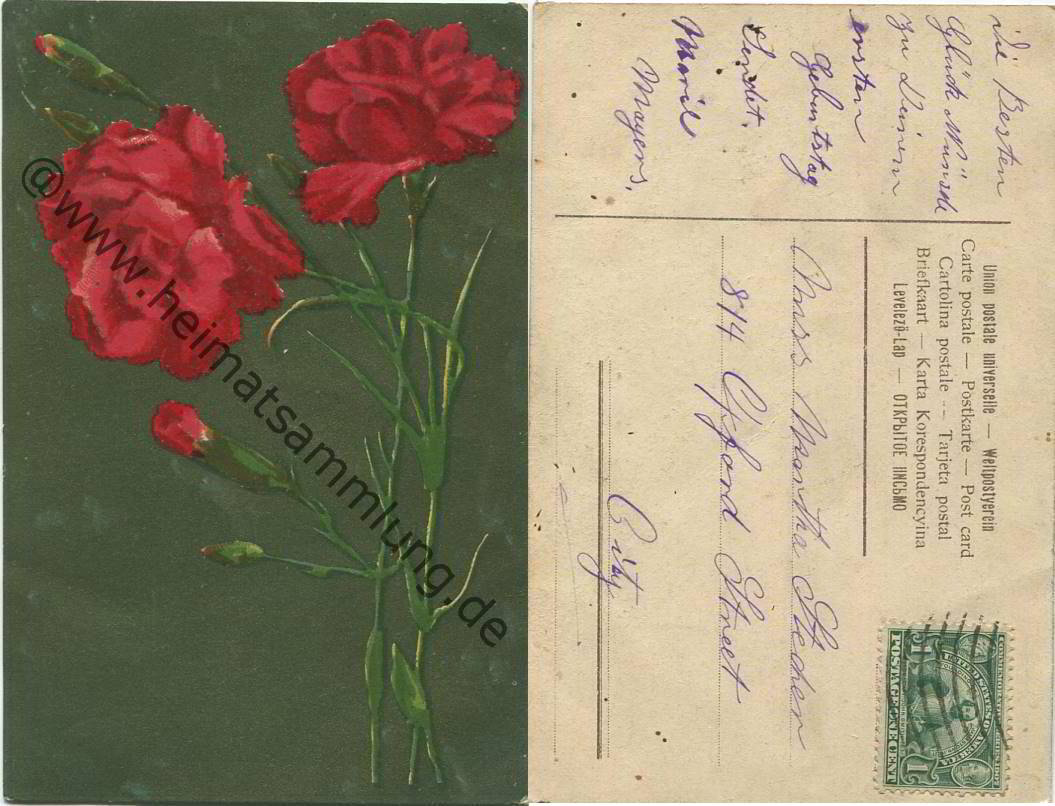 @www.heimatsammlung.de
die Besten
Glück Wünsche
zu Deinem
ersten
Geburtstag
sendet.
Mayers.
Union postale universelle — Weltpostverein
Carte postale — Postkarte — Post card
Cartolina postale — Tarjeta postal
Briefkaart — Karta Korespondencyina
Levelező-Lap — ОТКРЫТОЕ ПИСЬМО
Miss Martha Stecher
814 Clifford Street
City
COMMEMORATIVE
UNITED STATES OF AMERICA
POSTAGE ONE CENT
1